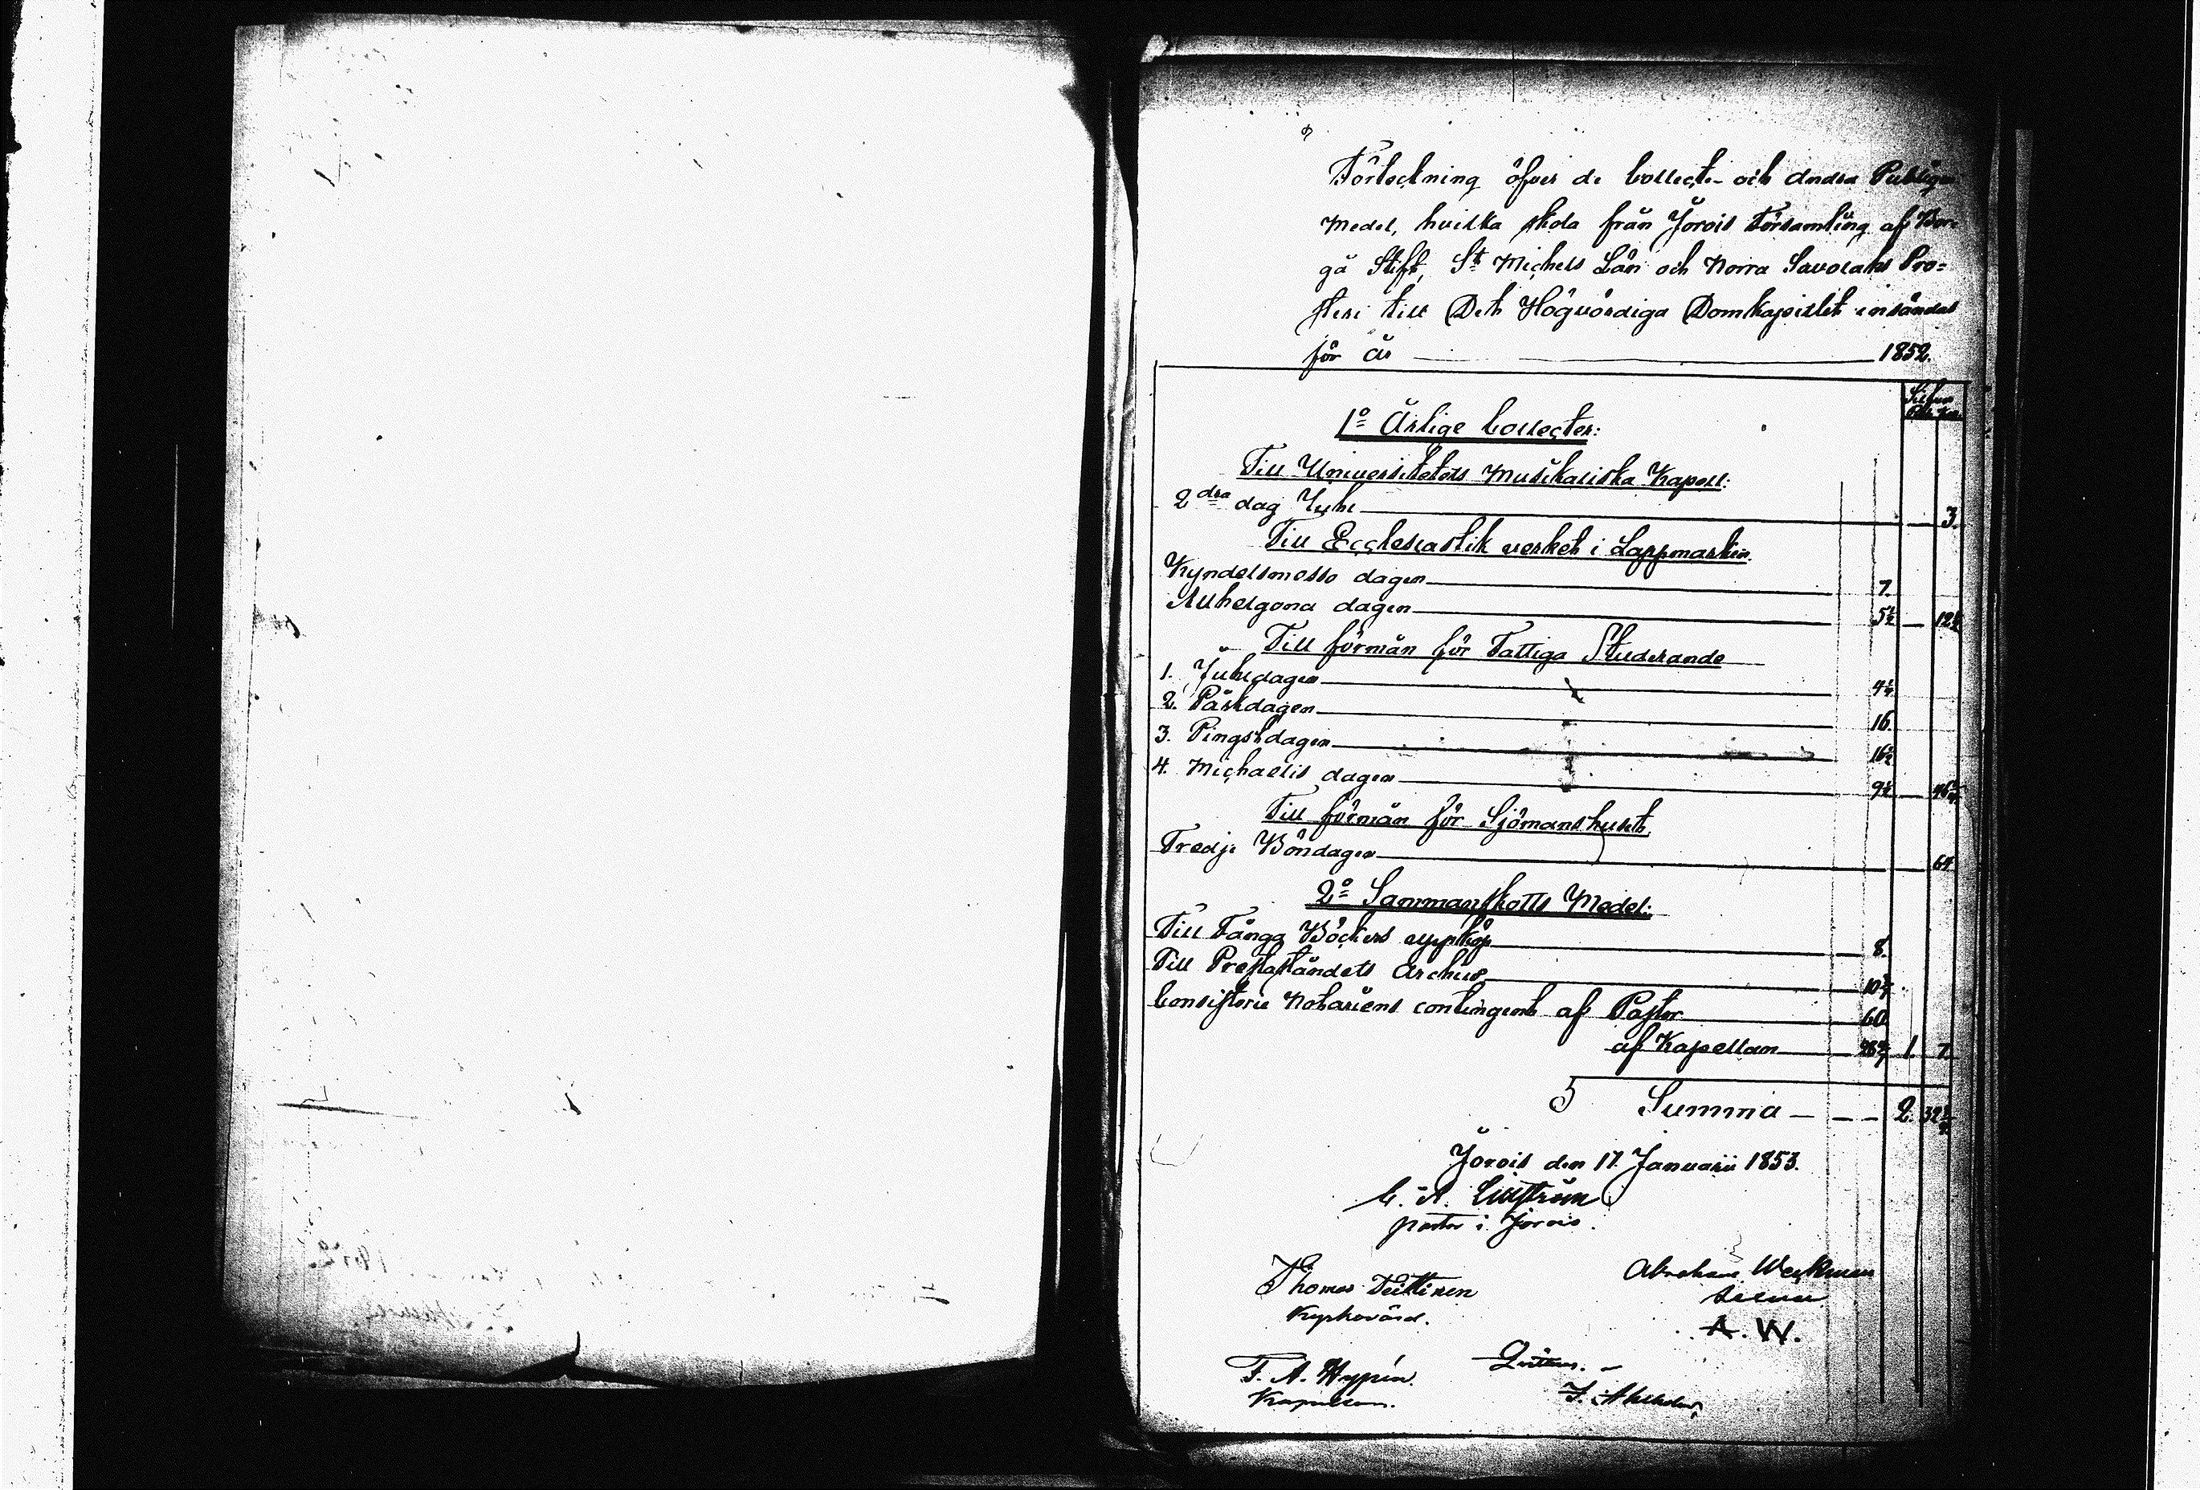 Förteckning öfver de Collecter och Andra Publique
Medel, hvilka skola från Jorois Församling af Bor-
gå Stift, St Michels Län och Norra Savolaks Pro=
steri till Det Högvördiga Domkapitlet insändas
för år 1852.
Silfver
Rub. Kop.
1o Årlige Collecter:
Till Universitetets Musikaliska Kapell:
2dra dag Jule 3.
Till Ecclesiastik verket i Lappmarken.
Kyndelsmesso dagen 7.
Allhelgona dagen 5½ 12½
Till förmån för Fattiga Studerande
1. Juledagen 4¼
2. Påskdagen 16.
3. Pingstdagen 16½
4. Michaelis dagen 9½
Till förmån för Sjömanshuset.
Tredje Böndagen 6¼
2o Sammanskotts Medel:
Till Fånga Böckers uppköp 8.
Till Preståståndets Archiv 10
Consistorie Notariens contingent af Pastor 60
af Kapellan 28 1. 7.
5 Summa 2. 32
Jorois den 17. Januarii 1853.
C. A. Lilliström
pastor i Jorois.
Thomas Teittinen
Kyrkovärd.
Abraham Weckman
A. W.
F. A. Hypén.
Kapellan.